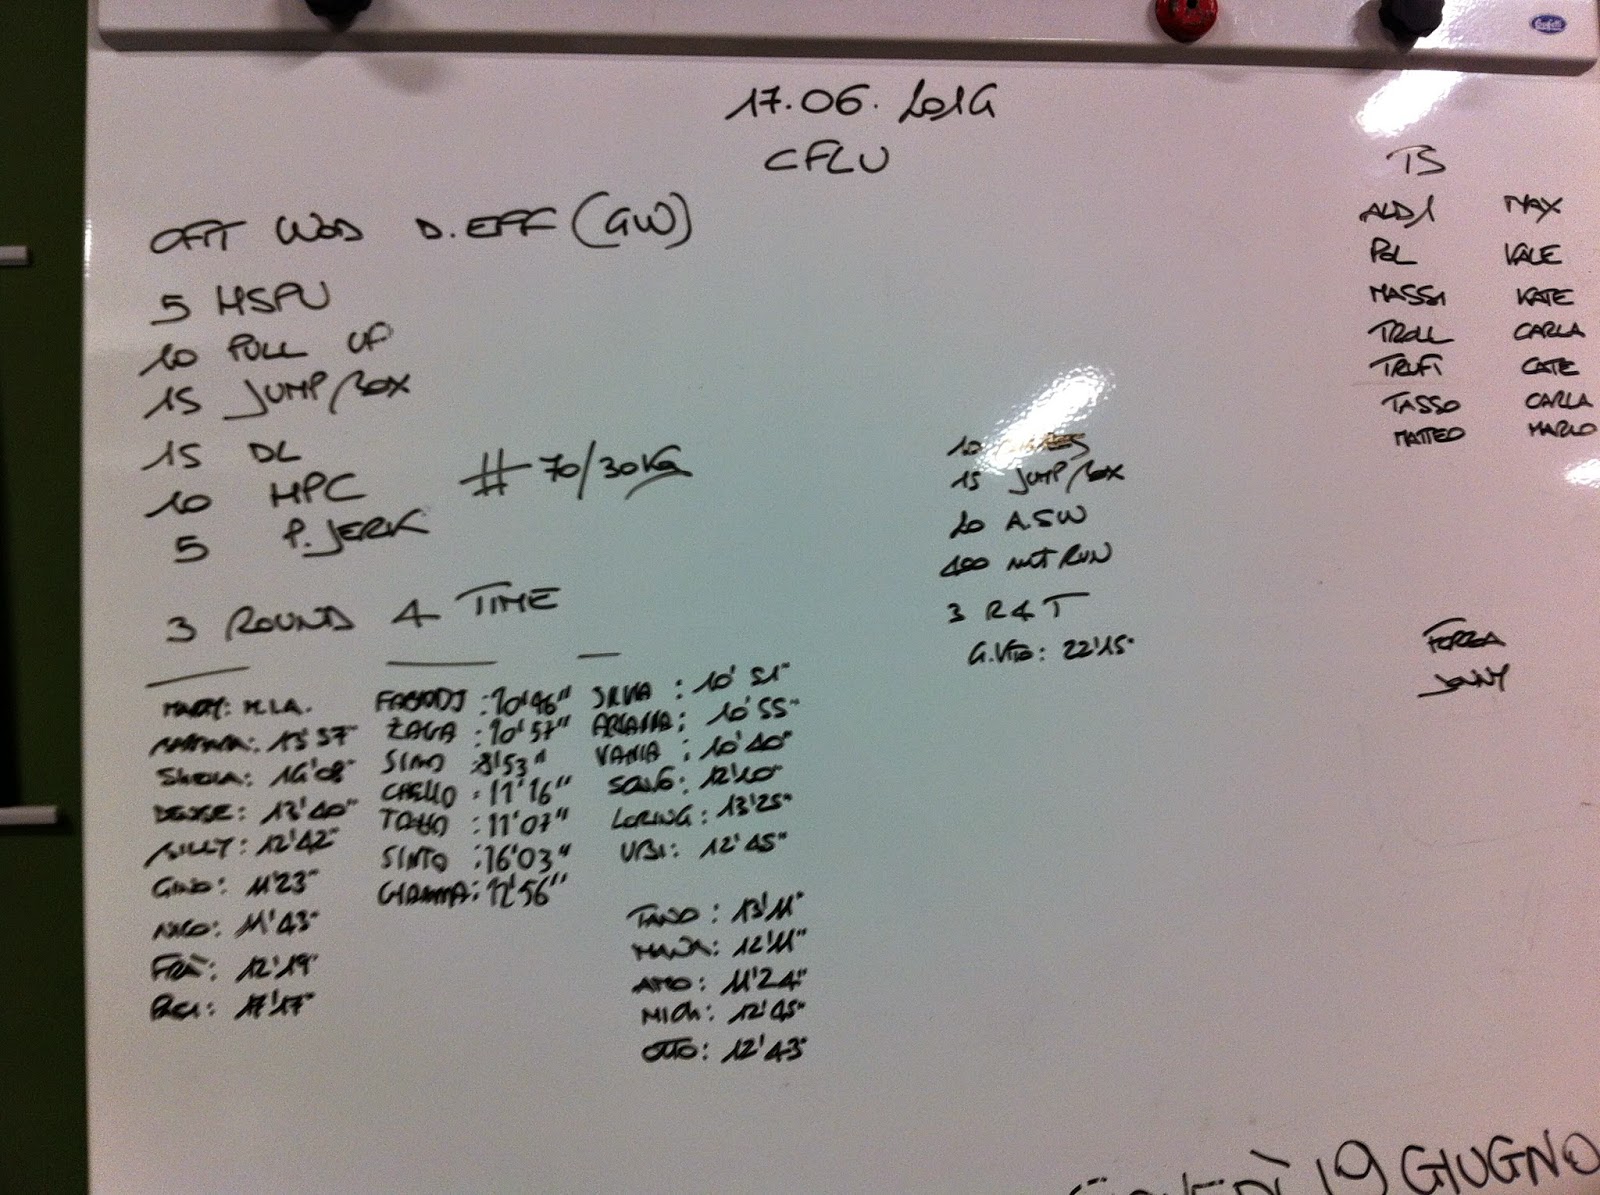 17.06.2014
CFLU
CFIT WOD D.EFF (GW)
5 HSPU
10 PULL UP
15 JUMP/BOX
15 DL
10 HPC # 70/30KG
5 P.JERK
3 ROUND 4 TIME
MARY: M.I.A.
15'37"
SHEILA: 14'08"
DENISE: 13'40"
BILLY: 12'42"
GINO: 11'23"
NICO: 11'43"
FRÀ: 12'19"
17'17"
ZAGA: 10'57"
8'53"
CHELLO: 11'16"
11'07"
SINTO: 16'03"
GIAMMA: 12'56"
SILVIA: 10'51"
ARIANNA: 10'55"
VANIA: 10'40"
12'10"
LORING: 13'25"
UBI: 12'45"
TANO: 13'11"
12'11"
11'24"
MICH: 12'45"
OTTO: 12'43"
10
15 JUMP/BOX
20 A.SW
400 MT RUN
3 R4T
G.VITO: 22'15"
TS
ALDI MAX
POL VALE
MASSI KATE
TROLL CARLA
TRUFI CATE
TASSO CARLA
MATTEO MARCO
FORZA
JONNY
19 GIUGNO